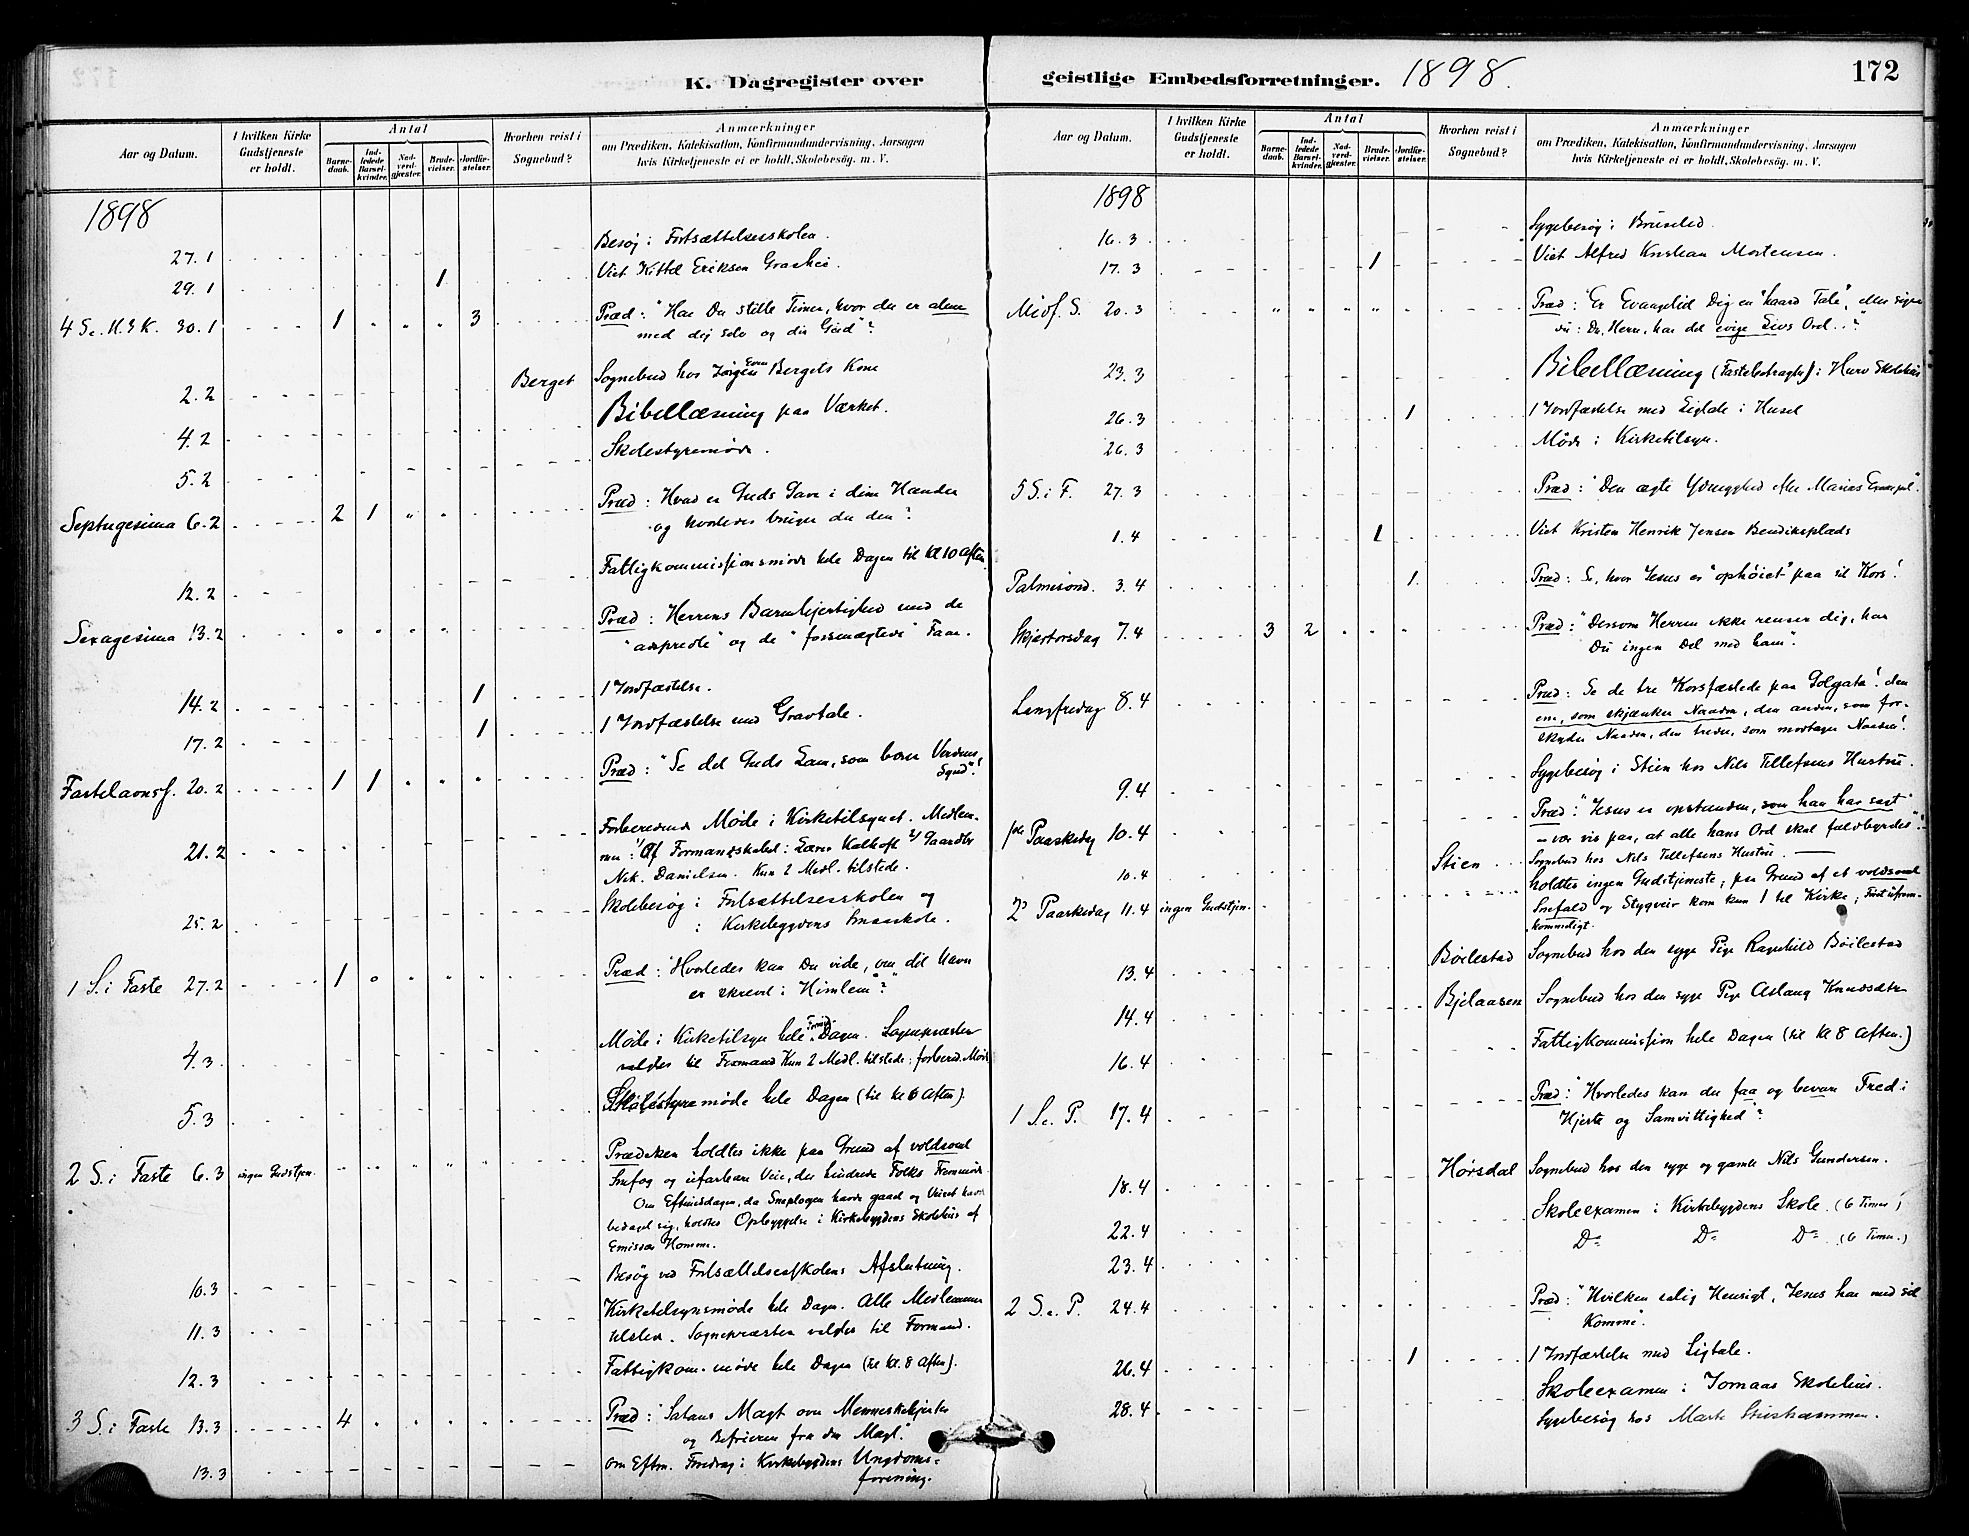 K. Dagregister over
geistlige Embedsforretninger. 1898.
172
Aar og Datum.
I hvilken Kirke Gudstjeneste er holdt.
Antal
Barne-daab.
Ind-ledede Barsel-kvinder.
Nad-verd-gjæster.
Brude-vielser.
Jordfæ-stelser.
Hvorhen reist i Sognebud?
Anmærkninger
om Prædiken, Katekisation, Konfirmandundervisning, Aarsagen
hvis Kirketjeneste ei er holdt, Skolebesøg, m. V.
1898
27.1 Besøg i Fortsættelsesskolen.
29.1 1 Viet Kittel Eriksen Graahei.
4 S. e. H. 3 K. 30.1 1 3 Præd: "Har Du stille Timer, hvor du er alene
med dig selv og din Gud"?
2.2 Berget Sognebud hos Even Bergets Kone
4.2 Bibellæsning paa Værket.
5.2 Skolestyremøde.
Septugesima 6.2 2 1 Præd: Hvad er Guds Gave i dine Hænder
og hvorledes bruger du den?
12.2 Fattigkommissionsmøde hele Dagen til kl 10 Aften.
Sexagesima 13.2 Præd: Herrens Barmhjertighed med de
"adspredte" og de "forsmægtede" Faar.
14.2 1 1 Jordfæstelse.
17.2 1 1 Jordfæstelse med Gravtale.
Fastelavnsf. 20.2 1 1 Præd: "Se det Guds Lam, som bærer Verdens
Synd"!
21.2 Forberedende Møde i Kirketilsynet. Medlem-
mer: Af Formandskabet: Lærer Kalhoft og Gaardbr
Nik. Danielsen. Kun 2 Medl. tilstede.
25.2 Skolebesøg i Fortsættelsesskolen og
i Kirkebygdens Smaaskole.
1 S. i Faste 27.2 1 Præd: "Hvorledes kan Du vide, om dit Navn
er skrevet i Himlen"?
4.3 Møde i Kirketilsyn hele Form. Dagen. Sognepræsten
valdes til Formand Kun 2 Medl. tilstede: forbered. Møde
5.3 Skolestyremøde hele Dagen (til kl 6 Aften).
2 S. i Faste 6.3 ingen Gudstjen. Prædiken holdtes ikke paa Grund af voldsomt
Snefog og ufarbare Veie, der hindrede Folks Fremmøde
Om Eftmiddagen, da Sneplogen havde gaaet og Veiret havde
bedaget sig, holdtes Opbyggelse i Kirkebygdens Skolehus af
Emissær Homme.
10.3 Besøg ved Fortsættelsesskolens Afslutning.
11.3 Kirketilsynsmøde hele Dagen. Alle Medlemmer
tilsted. Sognepræsten valdes til Formand.
12.3 Fattigkom. møde hele Dagen (til kl. 8 Aften).
3 S. i Faste 13.3 4 Præd: "Satans Magt over Menneskehjertet
og Befrieren fra den Magt."
13.3 Om Eftm. Foredrag i Kirkebygdens Ungdoms-
forening.
Aar og Datum.
I hvilken Kirke Gudstjeneste er holdt.
Antal
Barne-daab.
Ind-ledede Barsel-kvinder.
Nad-verd-gjæster.
Brude-vielser.
Jordfæ-stelser.
Hvorhen reist i Sognebud?
Anmærkninger
om Prædiken, Katekisation, Konfirmandundervisning, Aarsagen
hvis Kirketjeneste ei er holdt, Skolebesøg, m. V.
1898
16.3 Sygebesøg i Bruseled.
17.3 1 Viet Alfred Kristian Mortensen.
Midf. S. 20.3 Præd: "Er Evangeliet Dig en "haard Tale", eller siger
du: Du, Herre, har det evige Livs Ord..?"
23.3 Bibellæsning (Fastebetragtn) i Hurv Skolehus
26.3 1 1 Jordfæstelse med Ligtale i Huset
26.3 Møde i Kirketilsyn.
5 S. i F. 27.3 Præd: "Den ægte Ydmyghed eller Marias Exempel".
1.4 1 Viet Kristen Henrik Jensen Bendiksplads
Palmesønd. 3.4 1. Præd: Se, hvor Jesus er "ophøiet" paa sit Kors!
Skjærtorsdag 7.4 3 2 Præd: "Dersom Herren ikke renser dig, har
Du ingen Del med ham".
Langfredag 8.4 Præd: Se de tre Korsfæstede paa Golgata! den
ene, som skjænker Naaden, den anden, som for-
skyder Naaden, den tredie, som modtager Naaden!
9.4 Sygebesøg i Stien hos Nils Tellefsens Hustru.
1ste Paaskedag 10.4 Præd: "Jesus er opstanden, som han har sagt"
– vær vis paa, at alle hans Ord skal fuldbyrdes".
10.4 Stien Sognebud hos Nils Tellefsens Hustru.
2d Paaskedag 11.4 ingen Gudstjen. holdtes ingen Gudstjeneste; paa Grund af et voldsomt
Snefald og Stygveir kom kun 1 til Kirke; Føret ufrem-
kommeligt.
13.4 Bøilestad Sognebud hos den syge Pige Ragnhild Bøilestad
14.4 Bjelaasen Sognebud hos den syge Pige Aslaug Knudsdtr
16.4 Fattigkommission hele Dagen (til kl 8 Aften.)
1 S. e. P. 17.4 Præd: "Hvorledes kan du faa og bevare Fred i
Hjerte og Samvittighed"?
18.4 Hørsdal Sognebud hos den syge og gamle Nils Gundersen.
22.4 Skoleexamen i Kirkebygdens Skole. (6 Timer)
23.4 Do Do Do (6 Timer.)
2 S. e. P. 24.4 Præd: "Hvilken salig Hensigt, Jesus har med sit
Komme".
26.4 1 1 Jordfæstelse med Ligtale.
28.4 Skoleexamen i Jomaas Skolehus.
Sygebesøg hos Marte